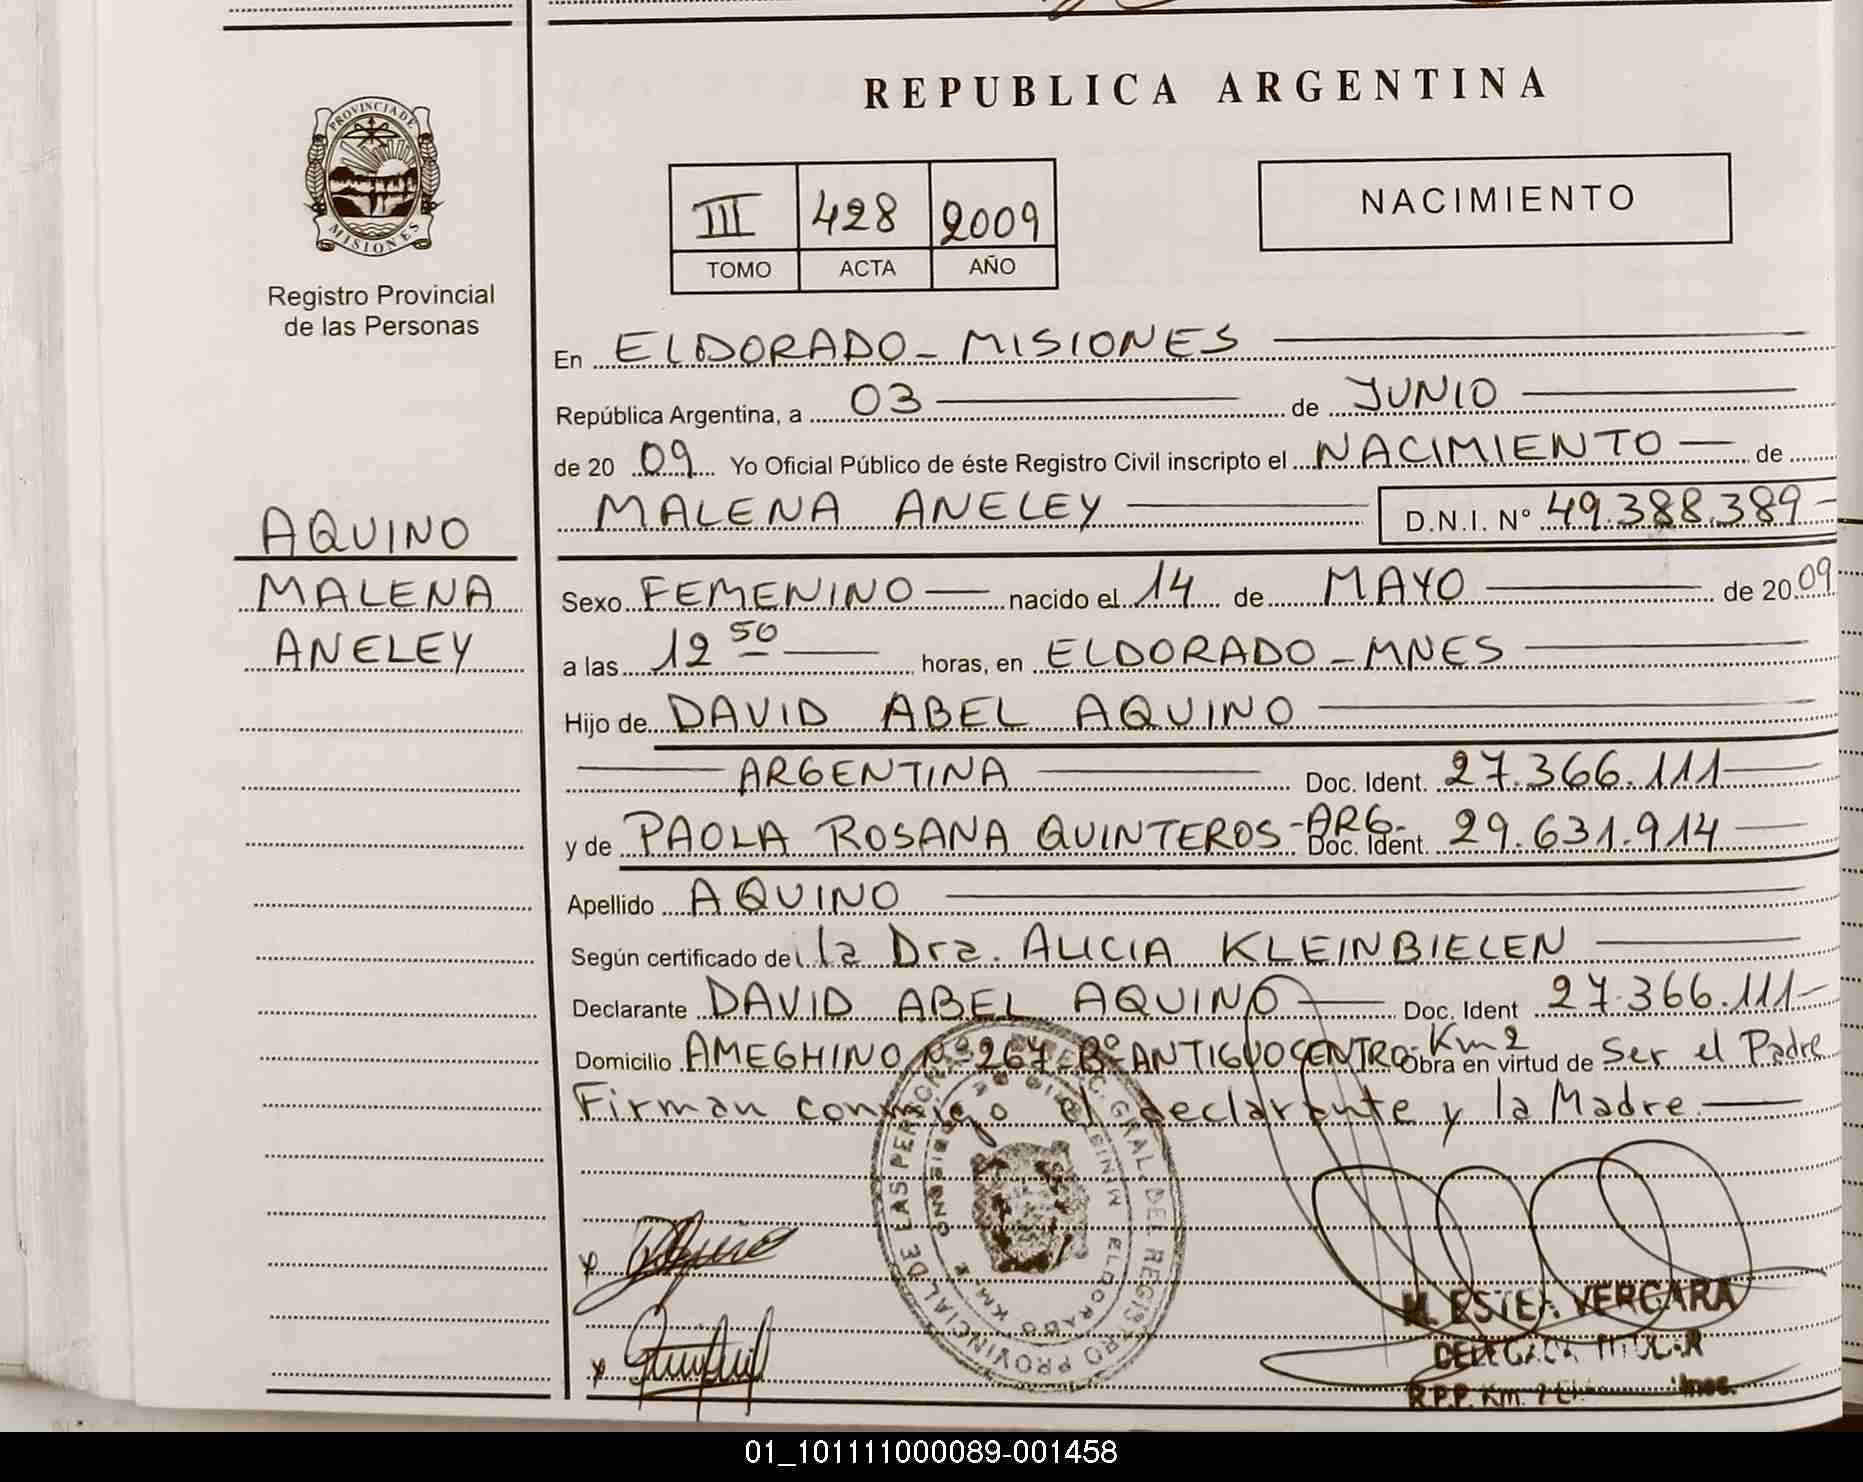 REPUBLICA ARGENTINA
PROVINCIA DE
MISIONES
Registro Provincial
de las Personas
III 428 2009
TOMO ACTA AÑO
NACIMIENTO
En ELDORADO - MISIONES
República Argentina, a 03 de JUNIO
de 20 09 Yo Oficial Público de éste Registro Civil inscripto el NACIMIENTO de
MALENA ANELEY D.N.I. N° 49.388.389
AQUINO
MALENA
ANELEY
Sexo FEMENINO nacido el 14 de MAYO de 20 09
a las 12 50 horas, en ELDORADO - MNES
Hijo de DAVID ABEL AQUINO
ARGENTINA Doc. Ident. 27.366.111
y de PAOLA ROSANA QUINTEROS - ARG - Doc. Ident. 29.631.914
Apellido AQUINO
Según certificado de la Dra. ALICIA KLEINBIELEN
Declarante DAVID ABEL AQUINO Doc. Ident 27.366.111
Domicilio AMEGHINO Nº 267 Bº ANTIGUO CENTRO Km 2 Obra en virtud de Ser el Padre
Firman conmigo el declarante y la Madre
M. ESTER VERGARA
DELEGADA TITULAR
R.P.P. Km. 2
01_101111000089-001458